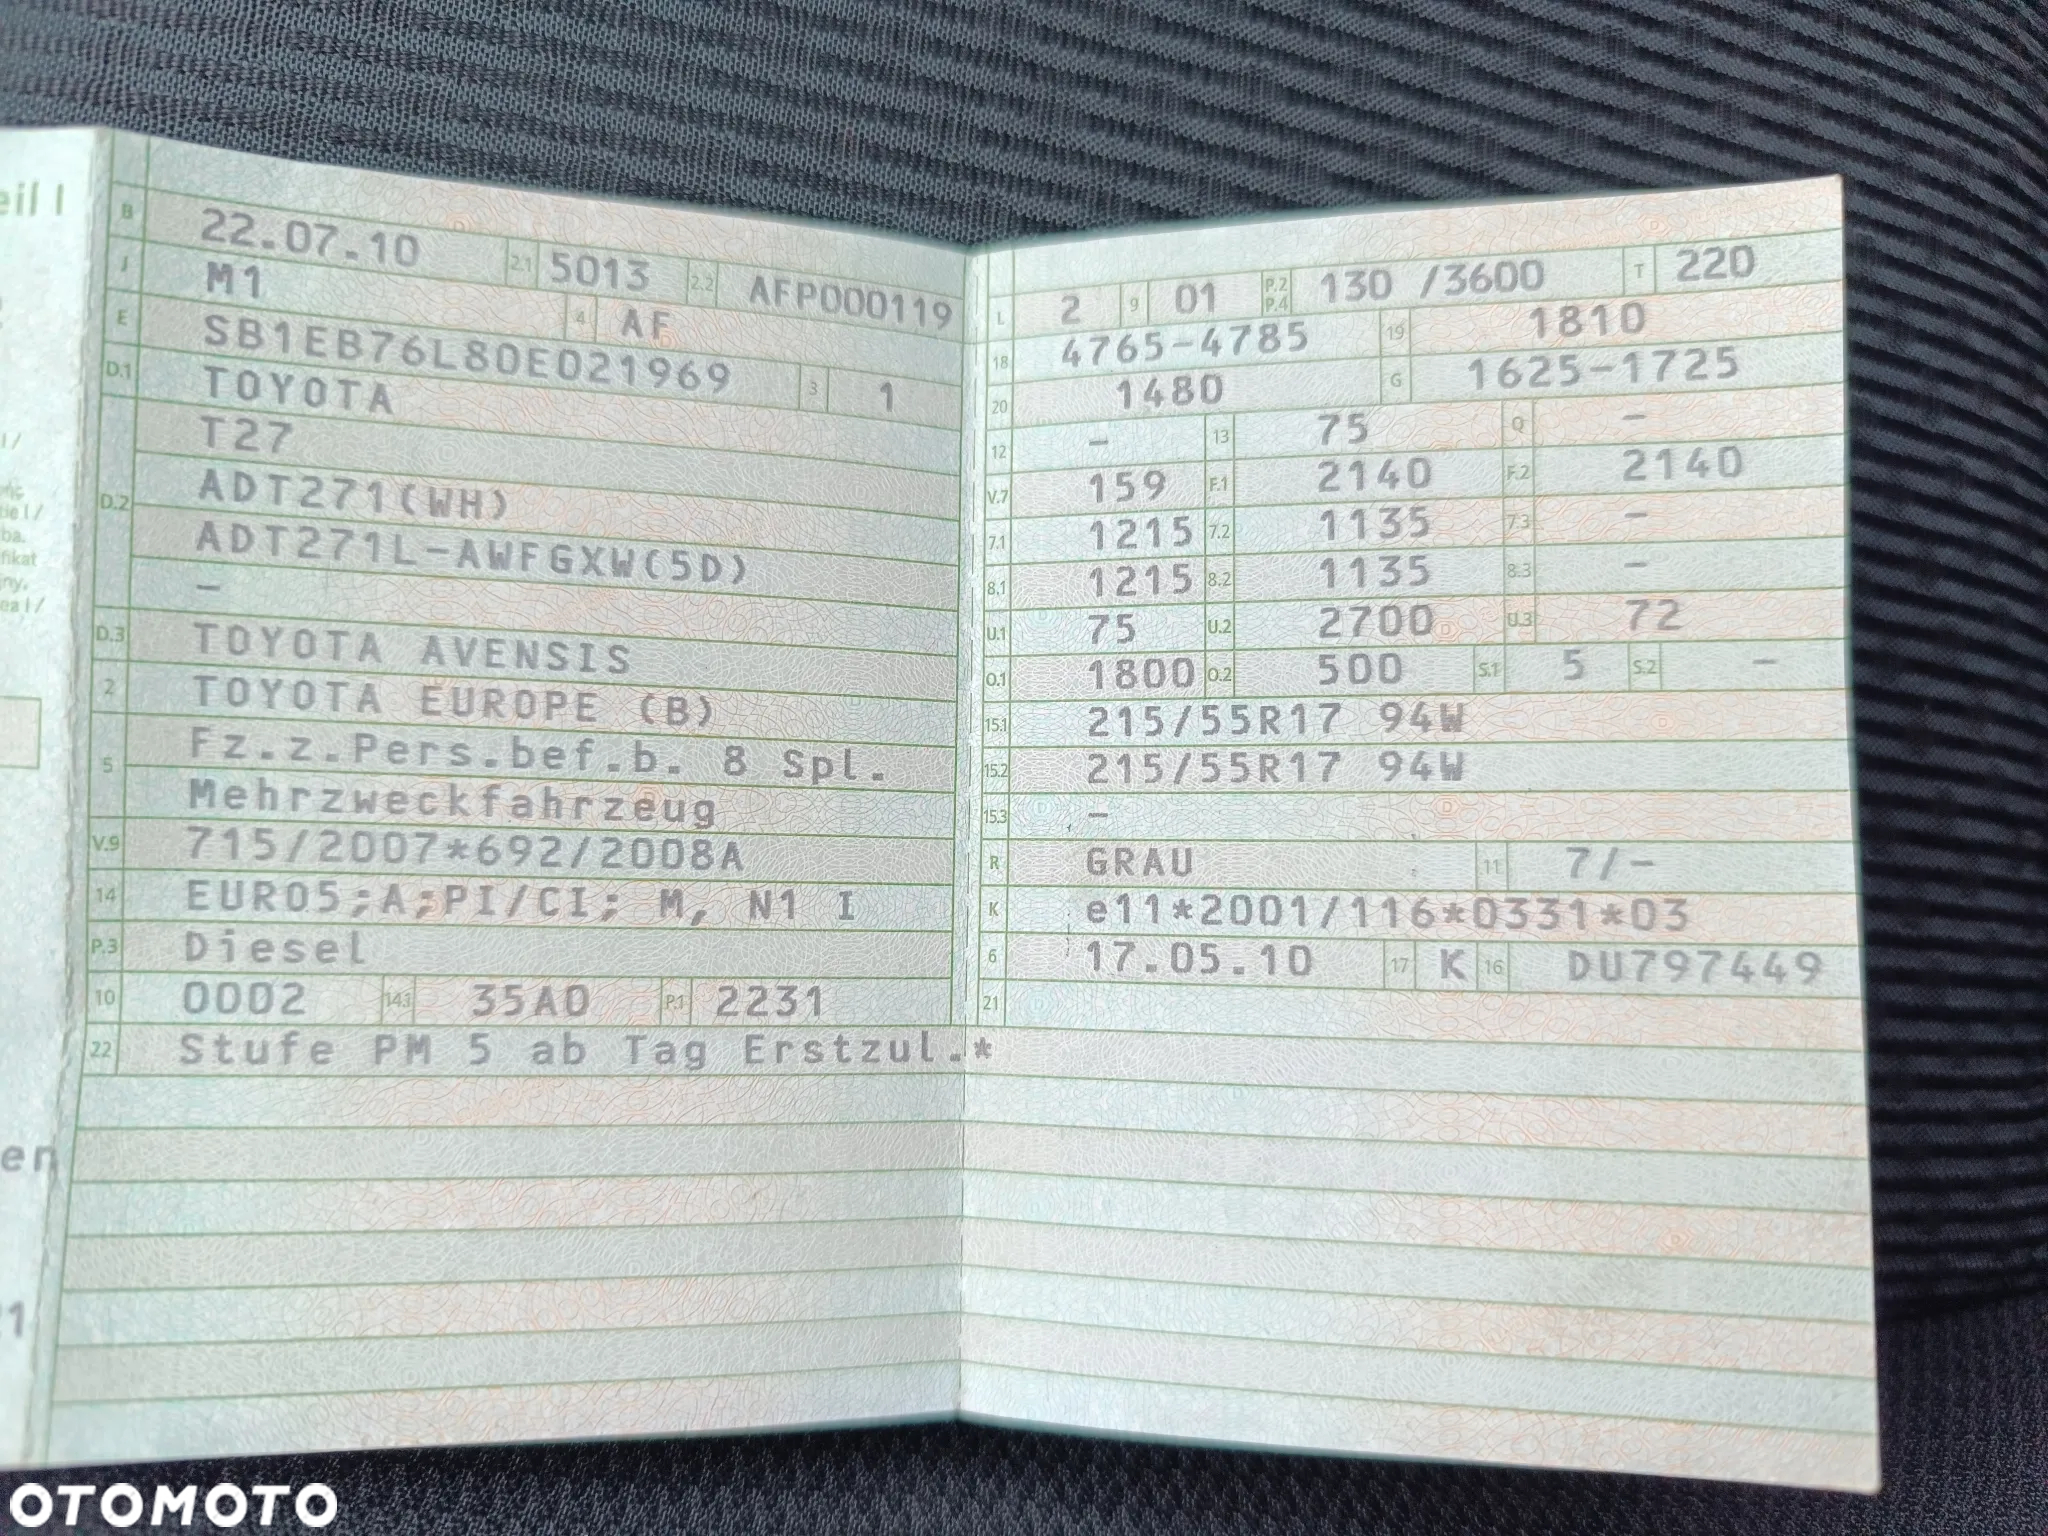 eil I
B 22.07.10 2.1 5013 2.2 AFP000119
J M1 4 AF
E SB1EB76L80E021969 3 1
D.1 TOYOTA
T27
D.2 ADT271(WH)
ADT271L-AWFGXW(5D)
-
D.3 TOYOTA AVENSIS
2 TOYOTA EUROPE (B)
5 Fz.z.Pers.bef.b. 8 Spl.
Mehrzweckfahrzeug
V.9 715/2007*692/2008A
14 EURO5;A;PI/CI; M, N1 I
P.3 Diesel
10 0002 14.1 35A0 P.1 2231
22 Stufe PM 5 ab Tag Erstzul.*
L 2 9 01 P.2 P.4 130 /3600 T 220
18 4765-4785 19 1810
20 1480 G 1625-1725
12 - 13 75 Q -
V.7 159 F.1 2140 F.2 2140
7.1 1215 7.2 1135 7.3 -
8.1 1215 8.2 1135 8.3 -
U.1 75 U.2 2700 U.3 72
O.1 1800 O.2 500 S.1 5 S.2 -
15.1 215/55R17 94W
15.2 215/55R17 94W
15.3 -
R GRAU 11 7/-
K e11*2001/116*0331*03
6 17.05.10 17 K 16 DU797449
21
en
OTOMOTO